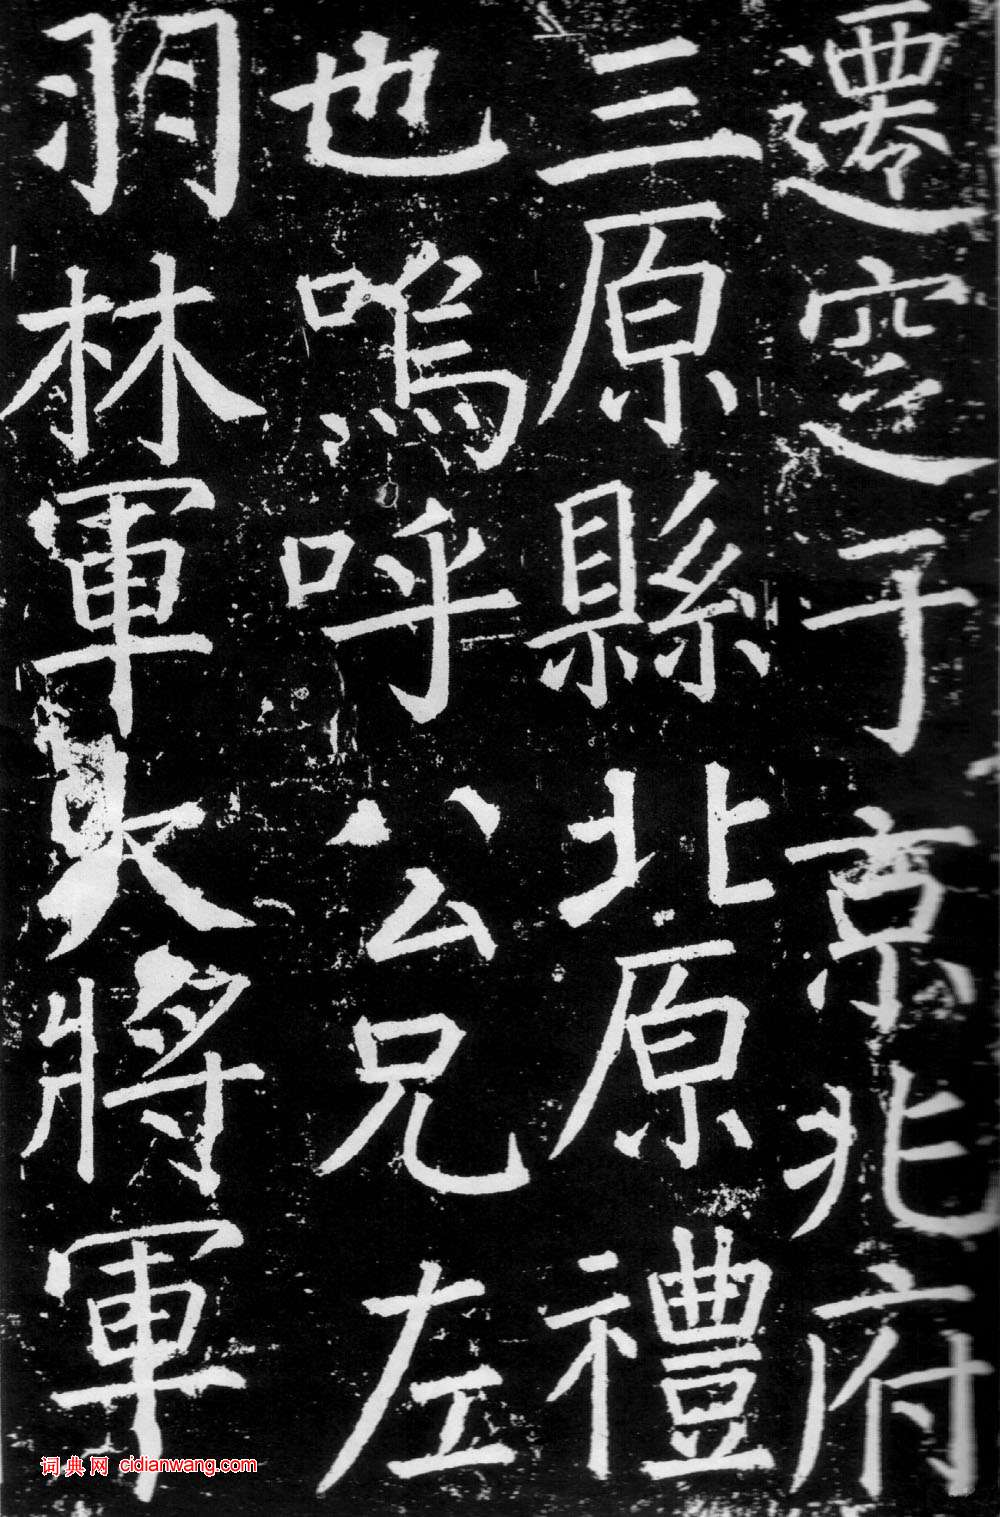 遷窆于京兆府
三原縣北原禮
也嗚呼公兄左
羽林軍大將軍
词典网 cidianwang.com